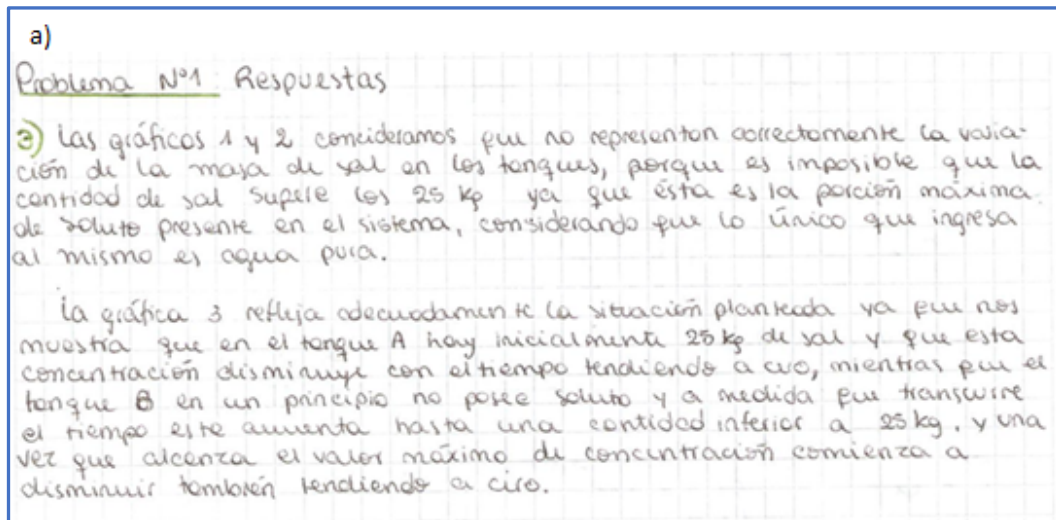 a)
Problema Nº1 Respuestas
3) Las gráficos 1 y 2 concideramos que no representan correctamente la varia-
ción de la masa de sal en los tanques, porque es imposible que la
cantidad de sal supere los 25 Kg ya que ésta es la porción máxima
de soluto presente en el sistema, considerando que lo único que ingresa
al mismo es agua pura.
La gráfica 3 refleja adecuadamente la situación planteada ya que nos
muestra que en el tanque A hay inicialmente 25 kg de sal y que esta
concentración disminuye con el tiempo tendiendo a cero, mientras que el
tanque B en un principio no posee soluto y a medida que transcurre
el tiempo este aumenta hasta una cantidad inferior a 25 kg, y una
vez que alcanza el valor máximo de concentración comienza a
disminuir también tendiendo a cero.